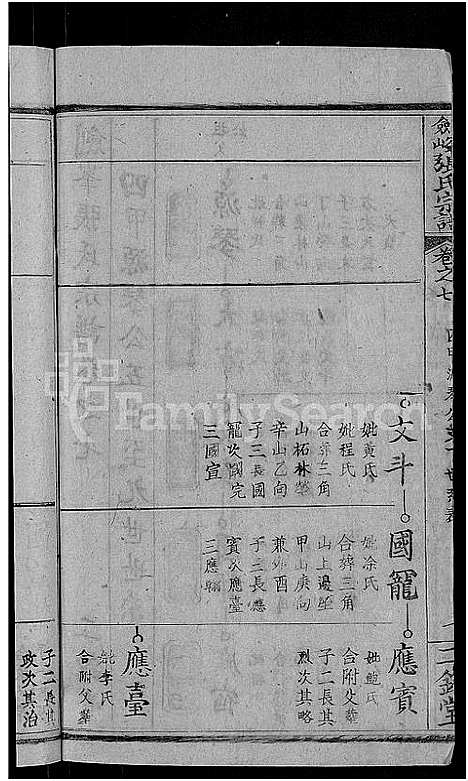 劍峰張氏宗譜
卷之七
三鑑堂
文斗
妣黃氏
妣程氏
合葬三角
山柘林塋
辛山乙向
子三長國
寵次國完
三國宣
國寵
妣涂氏
合葬三角
山上邊塋
甲山庚向
兼卯酉
子二長應
賓次應臺
三應翱
應賓
妣鮑氏
合附父塋
子二長其
烈次其略
應臺
妣李氏
合附父塋
子二長其
政次其治
FamilySearch